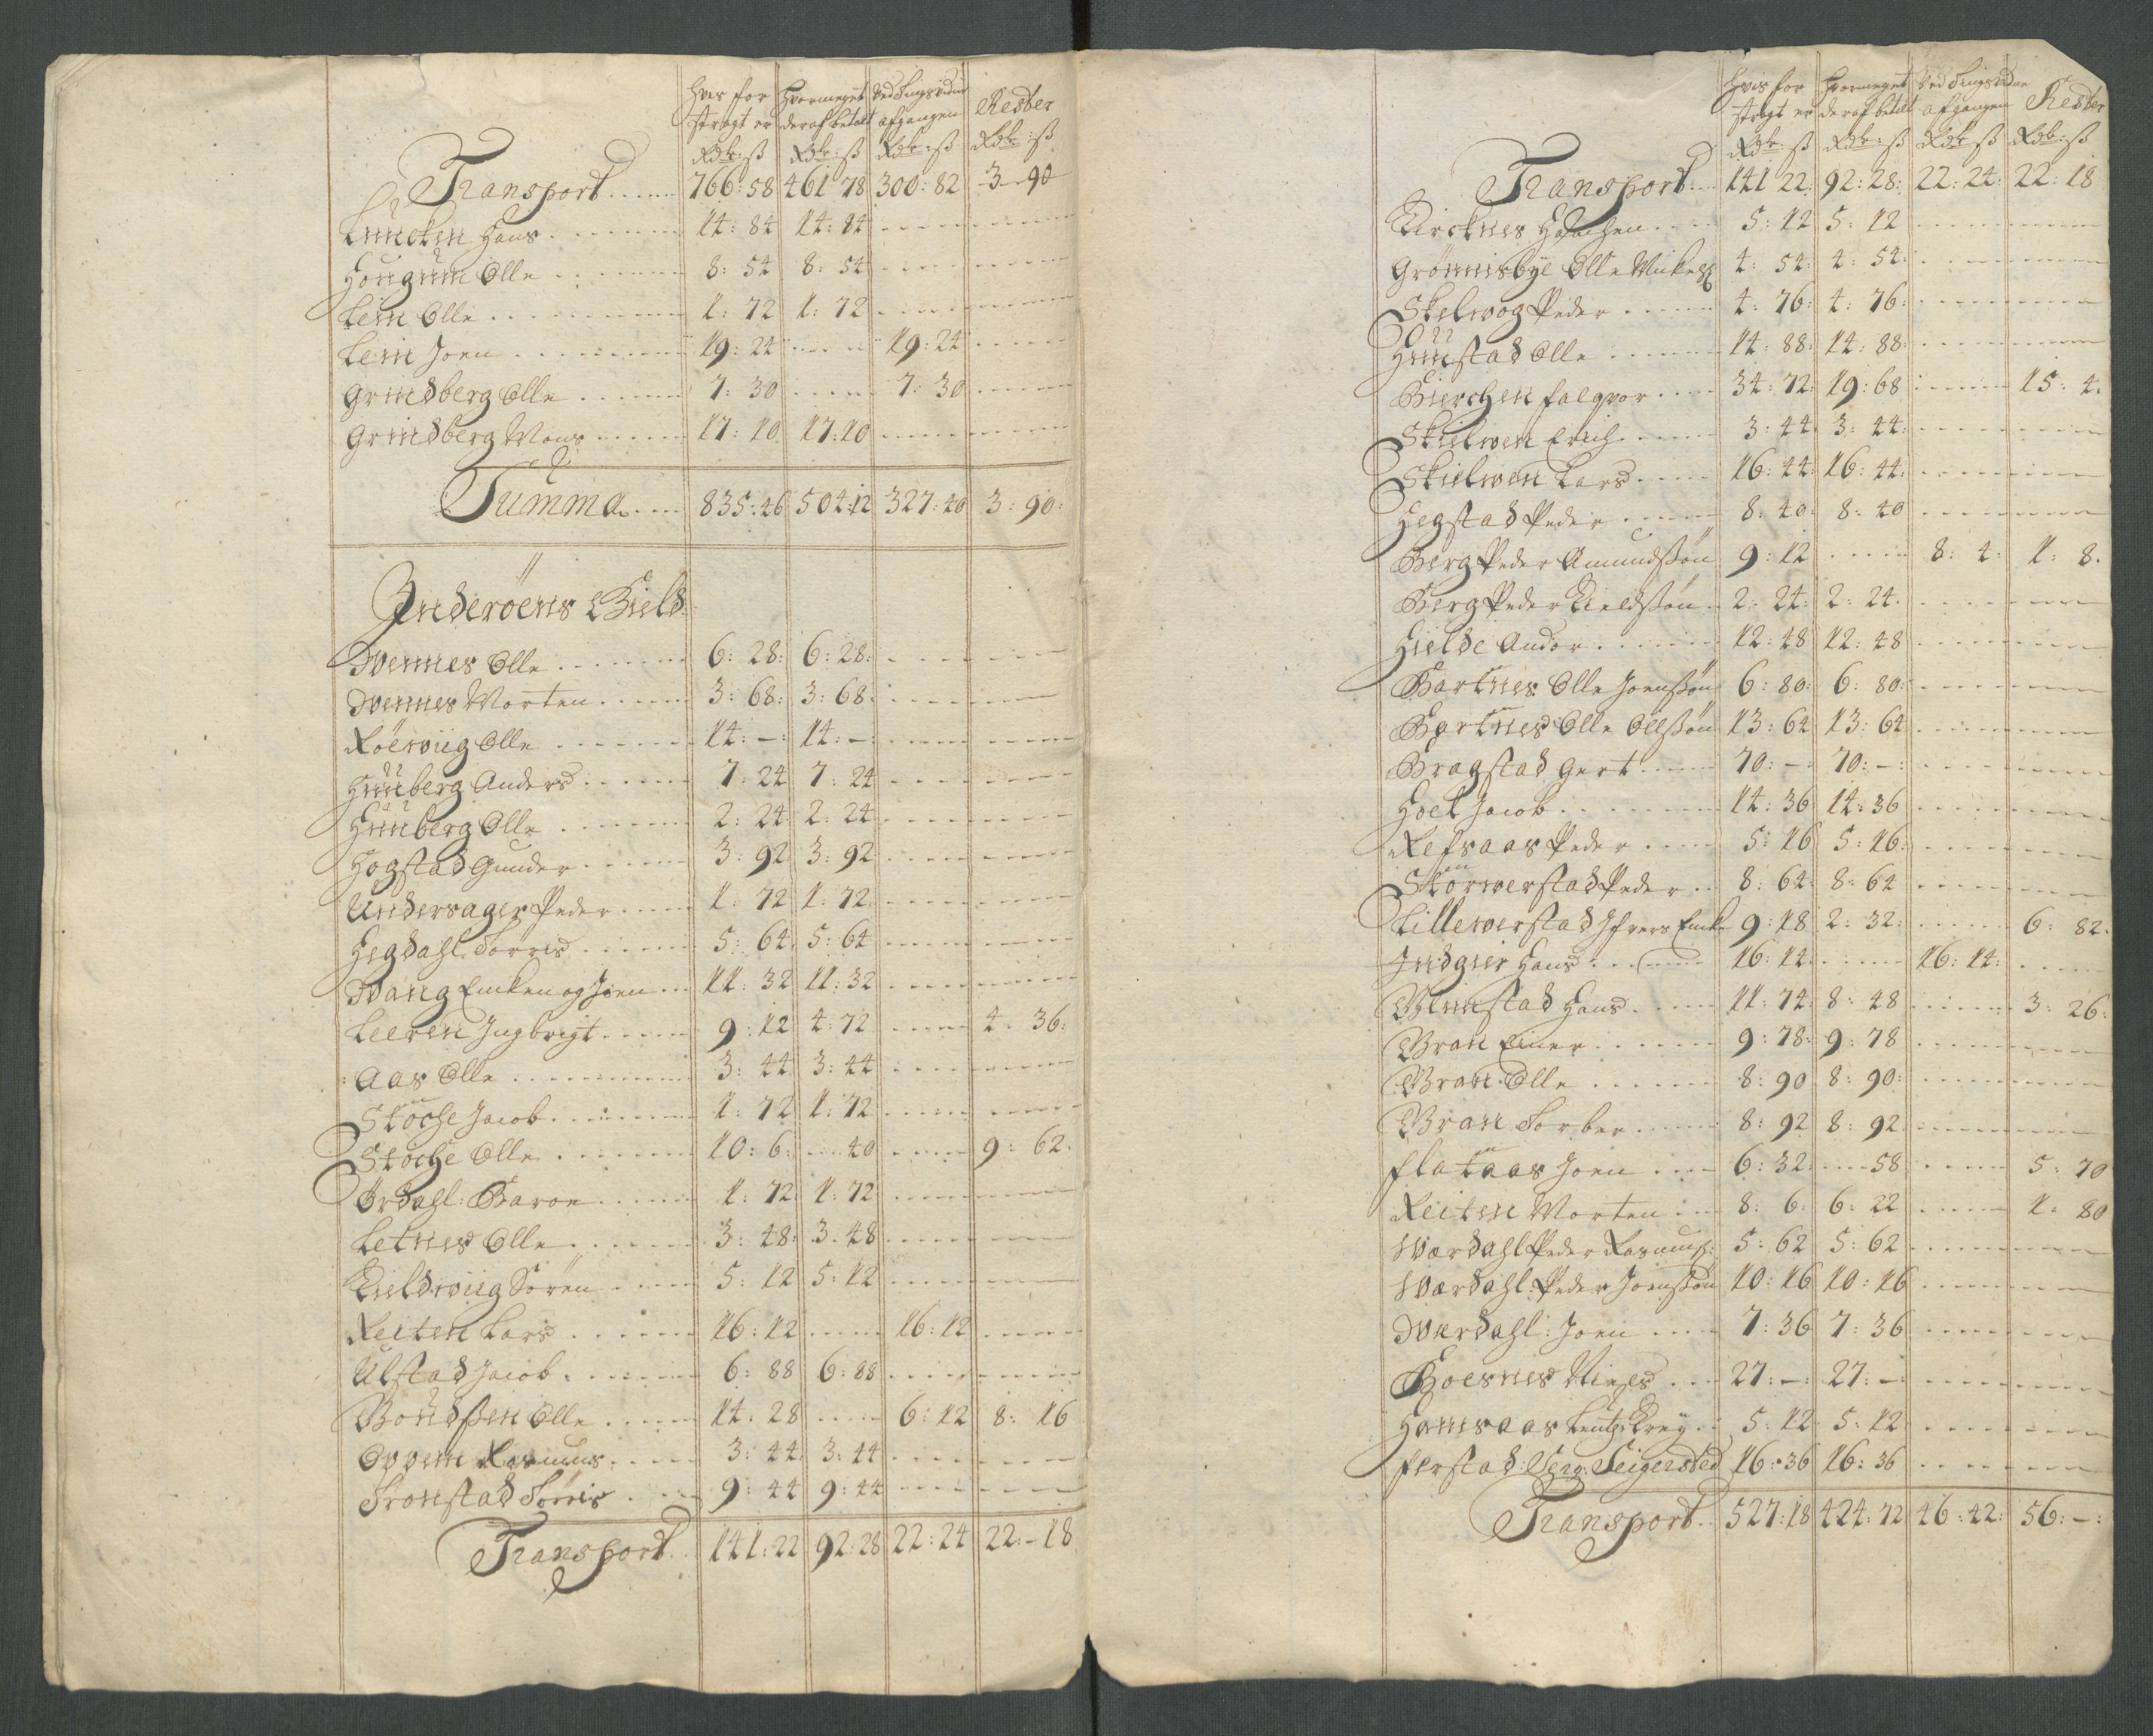 Hvis for Hvormeget Ved Tingsvidne Rester
stragt er deraf betalt afgangen
Rdr: ß Rdr: ß Rdr: ß Rdr: ß
Transport 766:58 461 78 300:82 3-90
Hans 14:84 14:84
Hougum Olle 8:54 8:54
Lein Olle 1:72 1:72
Lein Joen 19:24 19:24
Grindberg Olle 7:30 7:30
Grindberg Mons 17:10 17:10
Summa 835:46 504:12 327:40 3:90:
Inderöens Gield
Wennes Olle 6:28: 6:28:
Wennes Morten 3:68: 3:68:
Röeswiig Olle 14:-: 14:-:
Huuberg Anders 7:24 7:24
Huuberg Olle 2:24 2:24
Hogstad Gunder 3:92 3:92
Undersager Peder 1:72 1:72
Hegdahl Torris 5:64 5:64
Wang Encken og Joen 11:32 11:32
Leeren Ingbrigt 9:12 4:72 4:36:
Aas Olle 3:44 3:44
Stöche Jacob 1:72 1:72
Stoche Olle 10:6: 40 9:62.
Ördahl: Baroe 1:72 1:72
Letnes Olle 3:48: 3:48
Kieldwiig Sören 5:12 5:12
Reiten Lars 16:12 16:12
Ulstad Jacob 6:88 6:88
Olle 14:28 6:12 8:16
Oppem Rasmus 3:44 3:44
Tronstad Torris 9:44 9:44
Transport 141:22 92:28 22:24 22:-18
Hvis for Hvormeget Ved Tingsvidne Rester
stragt er deraf betalt afgangen
Rdr: ß Rdr: ß Rdr: ß Rdr: ß
Transport 141 22: 92:28: 22:24: 22:18
Kircknes Haachen 5:12 5:12
Grönnisbye Olle Mickels 4:54: 4:54:
Skelwog Peder 4:76: 4:76:
Huustad Olle 14:88: 14:88:
Bierchen falqvor 34:72: 19:68 15:4:
Skielwen Erich 3:44 3:44:
Skielwen Lars 16:44: 16:44:
Hegstad Peder 8:40: 8:40
Berg Peder Amundßön 9:12 8:4: 1:8.
Berg Peder Kieldßön 2:24: 2:24.
Hielde Andor 12:48 12:48
Bartnes Olle Joenßön 6:80: 6:80:
Bartnes Olle Ollßön 13:64 13:64
Bragstad Gert 70:-: 70:-:
Hoel Jacob 14:36 14:36
Refsaas Peder 5:16 5:16:
Storwerstad Peder 8:64: 8:64
Lillewerstad Ifvers Encke 9:18 2:32: 6:82.
Indgier Hans 16:14: 16:14:
Hans 11:74: 8:48 3:26:
Wran Einer 9:78: 9:78
Wran Olle 8:90 8:90:
Wran Torber 8:92 8:92
flataas Joen 6:32: 58 5:70
Reiten Morten 8:6: 6:22 1:80
Wardahl Peder Rasmus: 5:62 5:62
Wardahl: Peder Joenßön 10:16 10:16
Wardahl: Joen 7:36 7:36
Boesnes Niels 27:-: 27:-:
Hamsaas Leut: Krey 5:12 5:12
ferstad: Serg: Seigersted 16:36 16:36
Transport 527:18 424:72 46:42: 56:-: